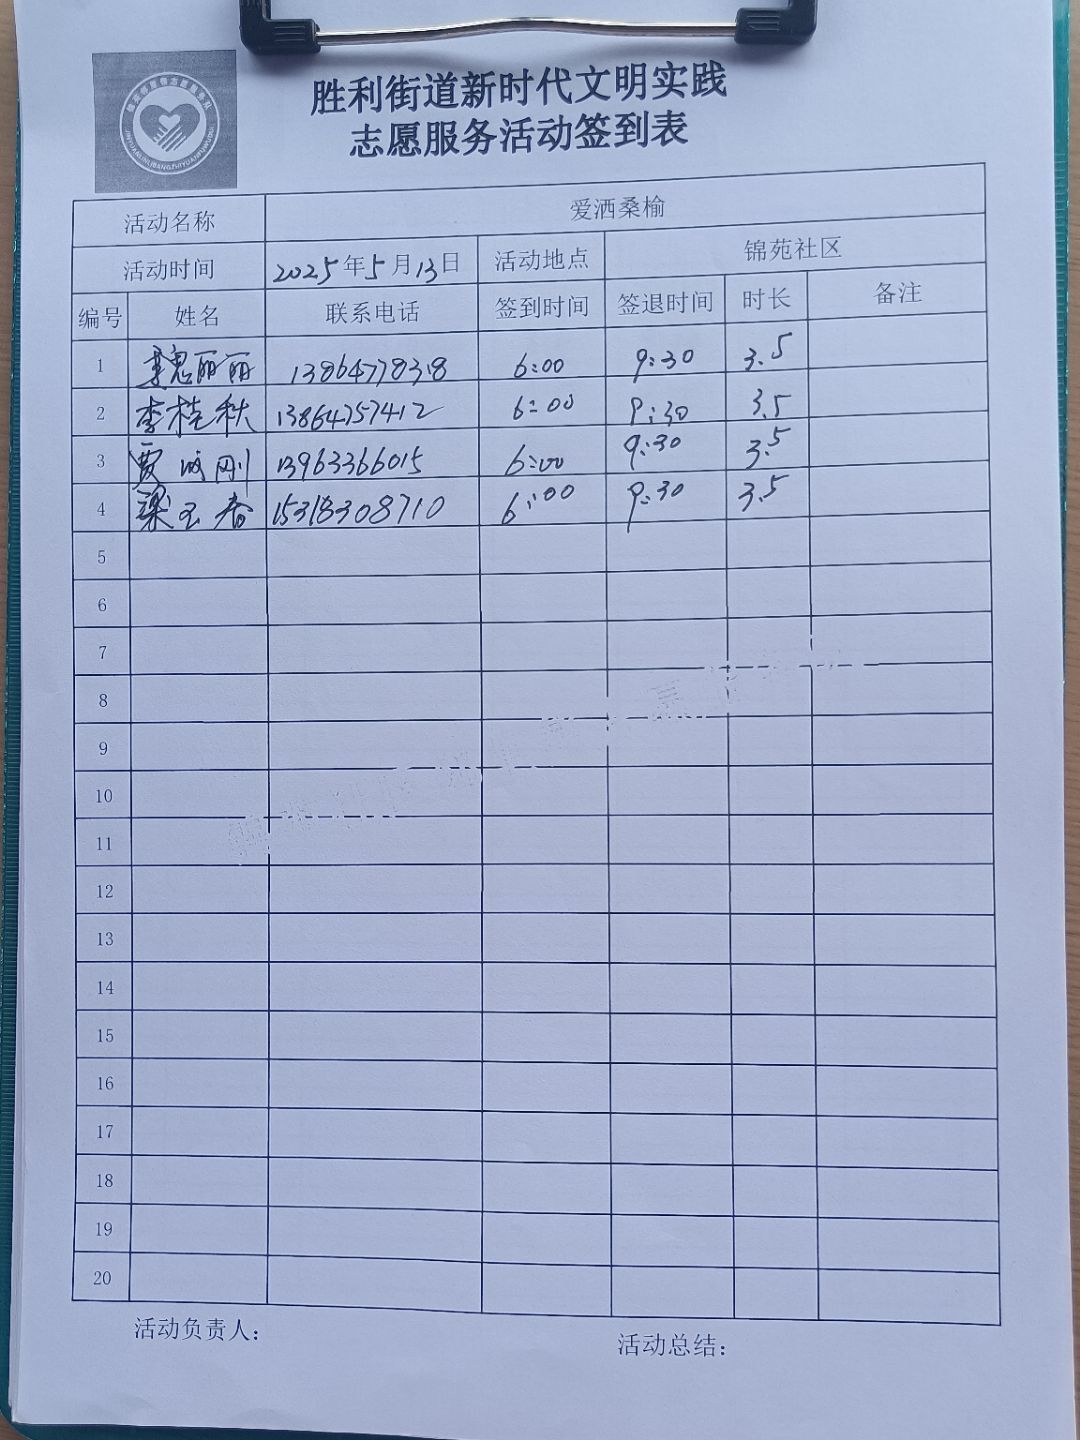 胜利街道新时代文明实践
志愿服务活动签到表
活动名称 爱洒桑榆
活动时间 2025年5月13日 活动地点 锦苑社区
编号 姓名 联系电话 签到时间 签退时间 时长 备注
1 丽丽 13864778318 6:00 9:30 3.5
2 李桂秋 13864757412 6:00 9:30 3.5
3 贾 刚 13963366015 6:00 9:30 3.5
4 梁玉春 15318308710 6:00 9:30 3.5
5
6
7
8
9
10
11
12
13
14
15
16
17
18
19
20
活动负责人： 活动总结：